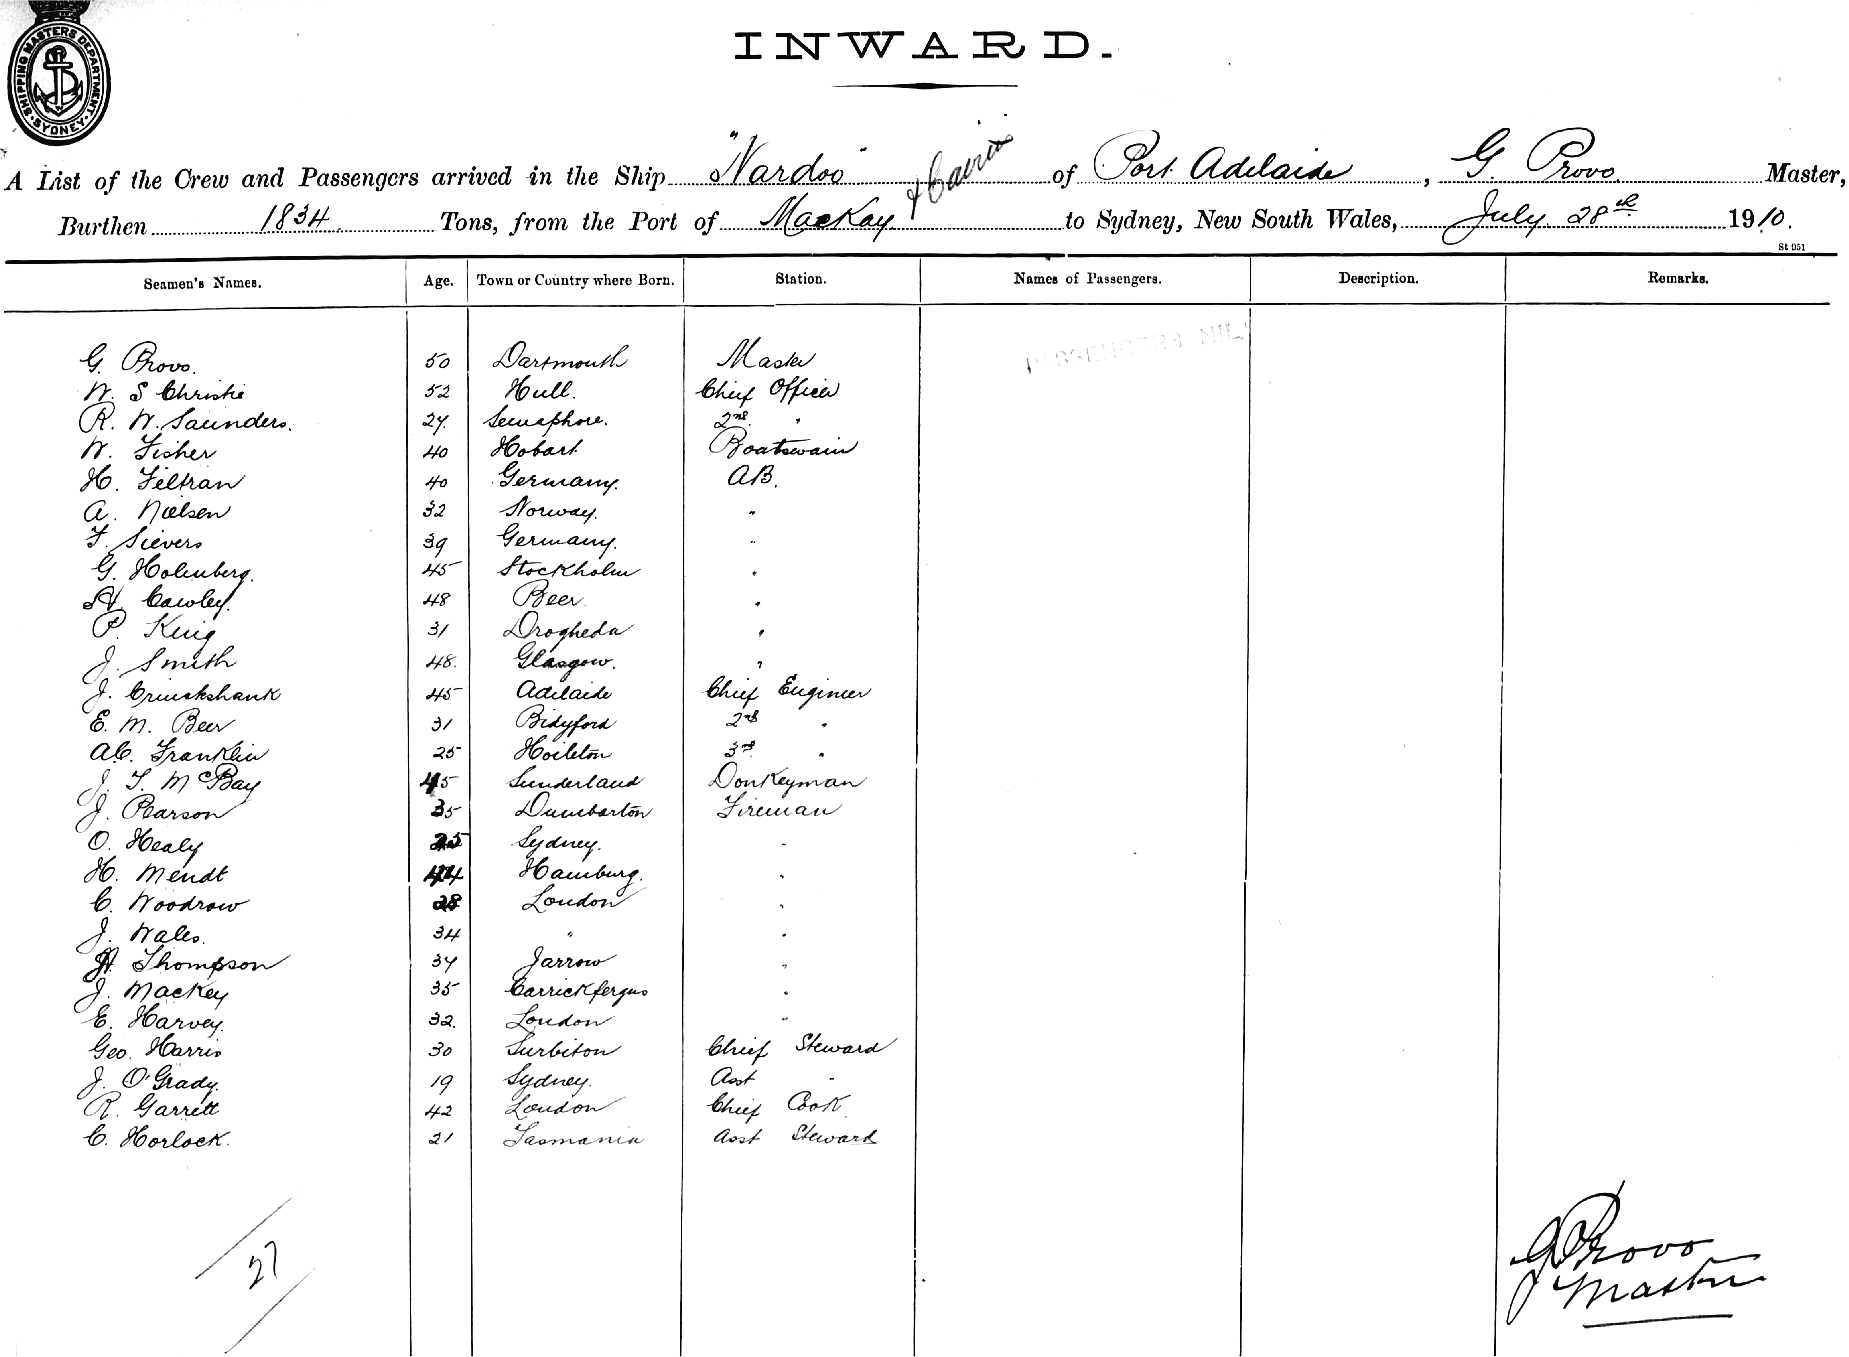 SHIPPING MASTERS DEPARTMENT · SYDNEY ·
INWARD.
A List of the Crew and Passengers arrived in the Ship "Nardoo" of Port Adelaide, G. Provo Master,
& Cairns
Burthen 1834 Tons, from the Port of MacKay to Sydney, New South Wales, July 28th 1910.
St 051
Seamen's Names. Age. Town or Country where Born. Station. Names of Passengers. Description. Remarks.
PASSENGERS NIL
G. Provo. 50 Dartmouth Master
W. S Christie 52 Hull. Chief Officer
R. W. Saunders. 27. Semaphore. 2nd "
W. Fisher 40 Hobart Boatswain
H. Feltran 40 Germany. AB.
A. Nielsen 32 Norway. "
F. Sievers 39 Germany. "
G. Holmberg. 45 Stockholm "
H. Cawley. 48 Beer "
P. King 31 Drogheda "
J. Smith 48. Glasgow. "
J. Cruickshank 45 Adelaide Chief Engineer
E. M. Beer 31 Bidyford 2nd "
A.C. Franklin 25 Hoileton 3rd "
J. T. McBay 45 Sunderland Donkeyman
J. Pearson 35 Dumbarton Fireman
O. Healy 25 Sydney. "
H. Mendt 44 Hamburg. "
C. Woodrow 28 London "
J. Wales. 34 " "
H. Thompson 37 Jarrow "
J. Mackey 35 Carrickfergus "
E. Harvey. 32. London "
Geo. Harris 30 Surbiton Chief Steward
J. O'Grady. 19 Sydney. Asst "
R. Garrett 42 London Chief Cook
C. Horlock. 21 Tasmania Asst Steward
27
G Provo
Master